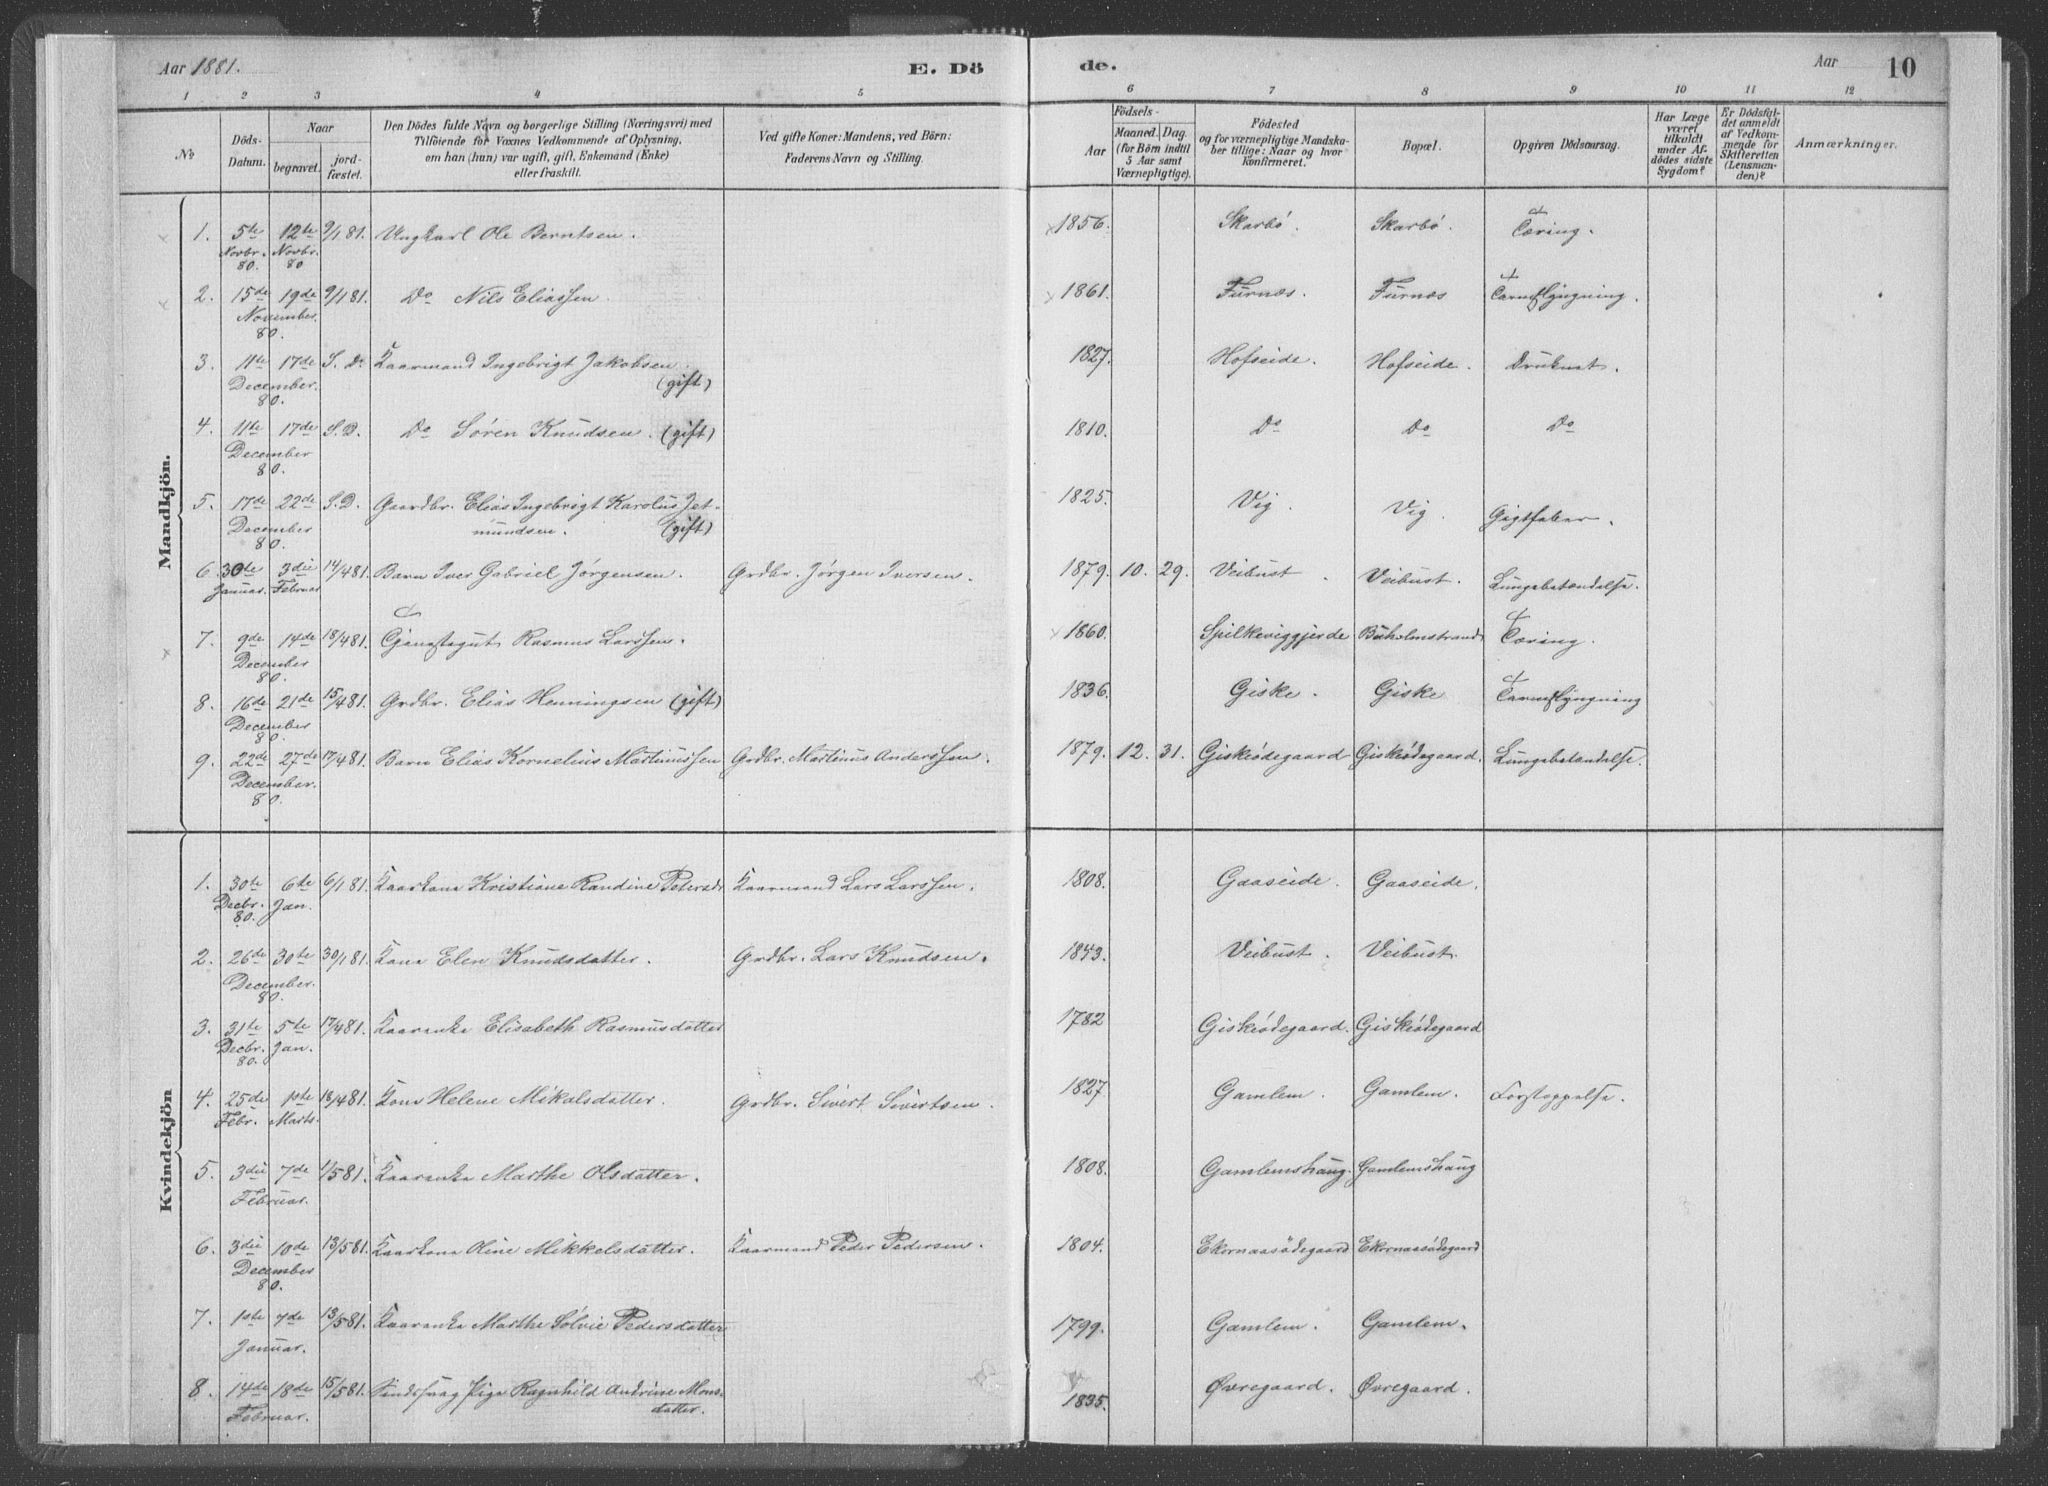 Aar 1881.
E. Dö
de.
Aar
10
1 2 3 4 5 6 7 8 9 10 11 12
No
Döds-Datum.
Naar
begravet.
jord-fæstet.
Den Dödes fulde Navn og borgerlige Stilling (Næringsvei) med
Tilföiende for Voxnes Vedkommende af Oplysning,
om han (hun) var ugift, gift, Enkemand (Enke)
eller fraskilt.
Ved gifte Koner: Mandens, ved Börn:
Faderens Navn og Stilling.
Födsels-
Aar
Maaned. Dag.
(for Börn indtil
5 Aar samt
Værnepligtige).
Födested
og for værnepligtige Mandska-
ber tillige: Naar og hvor
Konfirmeret.
Bopæl.
Opgiven Dödsaarsag.
Har Læge
været
tilkaldt
under Af-
dødes sidste
Sygdom?
Er Dödsfal-
det anmeldt
af Vedkom-
mende for
Skifteretten
(Lensman-
den)?
Anmærkninger.
Mandkjön.
1. 5te Novbr. 80. 12te Novbr. 80 9/1 81. Ungkarl Ole Berntsen. 1856. Skarbö. Skarbö. Tæring.
2. 15de 19de November. 80. 9/1 81. Do Nils Eliassen. 1861. Furnæs. Furnæs Tarmslyngning.
3. 11te 17de December. 80. S. D. Kaarmand Ingebrigt Jakobsen. (gift) 1827. Hofseide. Hofseide. Druknet.
4. 11te 17de December 80. S.D. Do Søren Knudsen. (gift) 1810. Do Do Do
5. 17de 22de December 80. S.D. Gaardbr. Elias Ingebrigt Karolus Jet-
mundsen. (gift) 1825. Vig. Vig. Gigtfeber.
6. 30te Januar. 3die Februar 14/4 81. Barn Iver Gabriel Jørgensen. Grdbr. Jørgen Iversen. 1879. 10. 29. Veibust. Veibust. Lungebetændelse.
7. 9de 14de December 80. 18/4 81. Tjenestegut Rasmus Larssen. 1860. Spilkeviggjerde Buholmstrand Tæring.
8. 16de 21de December 80. 15/4 81. Grdbr. Elias Henningsen (gift) 1836. Giske. Giske Tarmslyngning
9. 22de 27de December. 80. 17/4 81. Barn Elias Kornelius Martinussen Grdbr. Martinus Anderssen. 1879. 12. 31. Giskeödegaard Giskeödegaard. Lungebetændelse.
Kvindekjön
1. 30te Decbr. 80. 6te Jan. 6/1 81. Kaarkone Kristiane Randine Petersdr Kaarmand Lars Larssen. 1808. Gaaseide. Gaaseide.
2. 26de 30te December. 80. 30/1 81. Kone Elen Knudsdatter. Grdbr. Lars Knudsen. 1843. Veibust. Veibust.
3. 31te Decbr. 80. 5te Jan. 17/4 81. Kaarenke Elisabeth Rasmusdatter 1782 Giskeödegaard. Giskeödegaard
4. 25de Febr. 1ste Marts. 18/4 81. Kone Helene Mikalsdatter. Grdbr. Sivert Sivertsen. 1827. Gamlem. Gamlem. Forstoppelse.
5. 3die 7de Februar. 1/5 81. Kaarenke Marthe Olsdatter. 1808. Gamlemshaug. Gamlemshaug
6. 3die 10de December 80. 13/5 81. Kaarkone Oline Mikkelsdatter. Kaarmand Peder Pedersen. 1804. Ekornaasödegaard Ekornaasödegaard
7. 1ste 7de Januar. 13/5 81. Kaarenke Marthe Sølvie Pedersdatter 1799. Gamlem. Gamlem.
8. 14de 18de Februar. 15/5 81. Sindssvag Pige Ragnhild Andrine Mons-
datter. 1835. Øvregaard. Øvregaard.